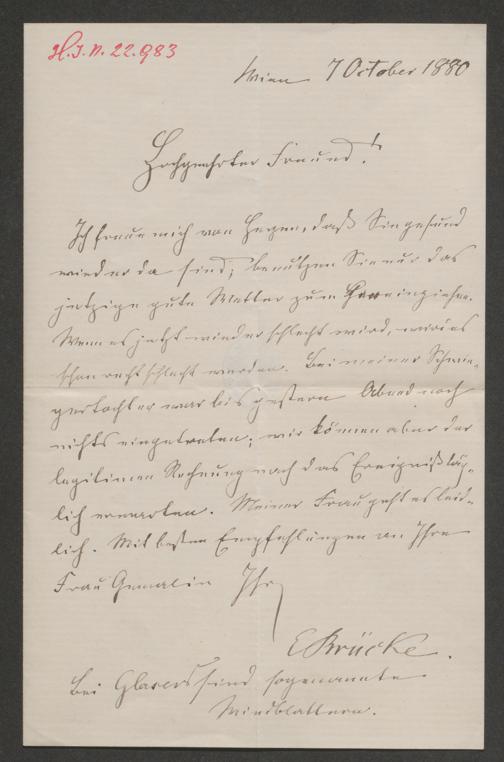 H.I.N. 22.983
Wien 7 October 1880
Hochgeehrter Freund!
Ich freue mich von Herzen, daß Sie gesund
wieder da sind; benutzen Sie nur das
jetzige gute Wetter zum Hereinziehen.
Wenn es jetzt wieder schlecht wird, wird es
schon recht schlecht werden. Bei meiner Schwie-
gertochter war bis gestern Abend noch
nichts eingetreten; wir können aber der
legitimen Rechnung nach das Ereigniß täg-
lich erwarten. Meiner Frau geht es leid-
lich. Mit besten Empfehlungen an Ihre
Frau Gemalin Ihr
E Brücke.
Bei Glasers sind sogenannte
Windblattern.